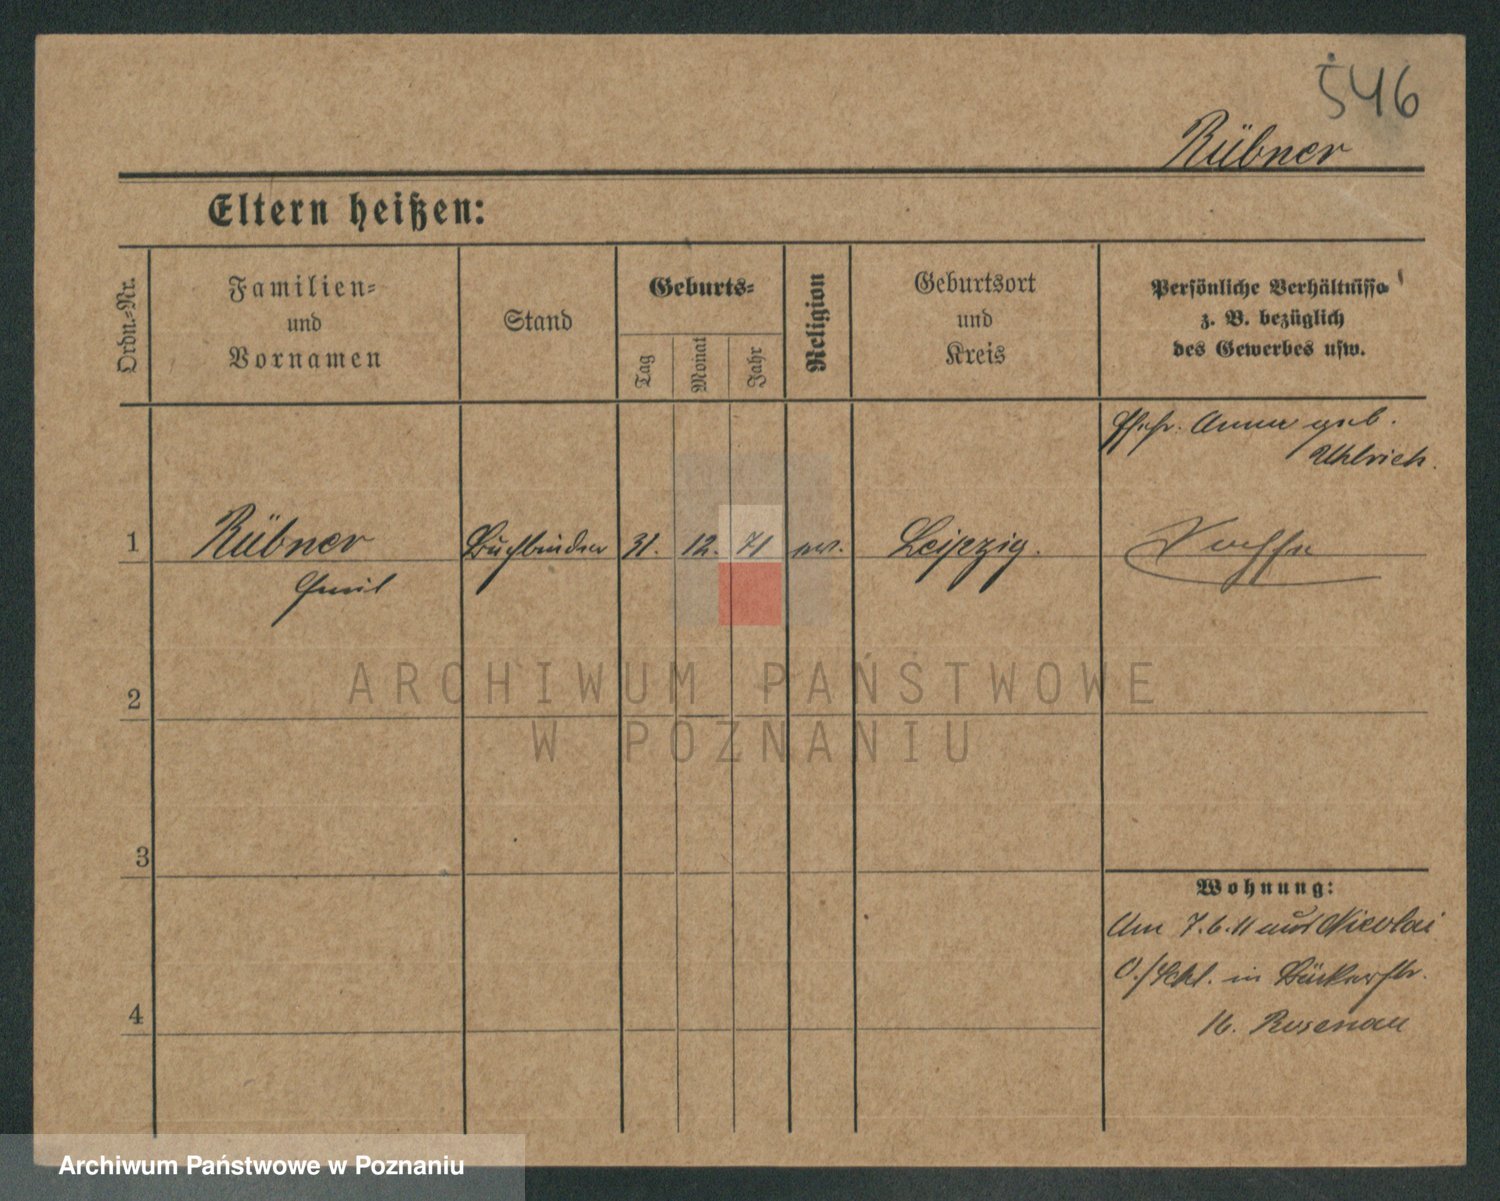 546
Rübner
Eltern heißen:
Ordn.-Nr.
Familien-
und
Vornamen
Stand
Geburts-
Tag
Monat
Jahr
Religion
Geburtsort
und
Kreis
Persönliche Verhältnisse
z. B. bezüglich
des Gewerbes usw.
Ehefr. Anna geb.
Uhlrich.
1 Rübner Buchbinder 31. 12. 71 ev. Leipzig.
Emil
2
3
4
Wohnung:
Am 7.6.11 aus Nicolai
O./Schl. in Bäckerstr.
16. Rosenau
ARCHIWUM PAŃSTWOWE
W POZNANIU
Archiwum Państwowe w Poznaniu